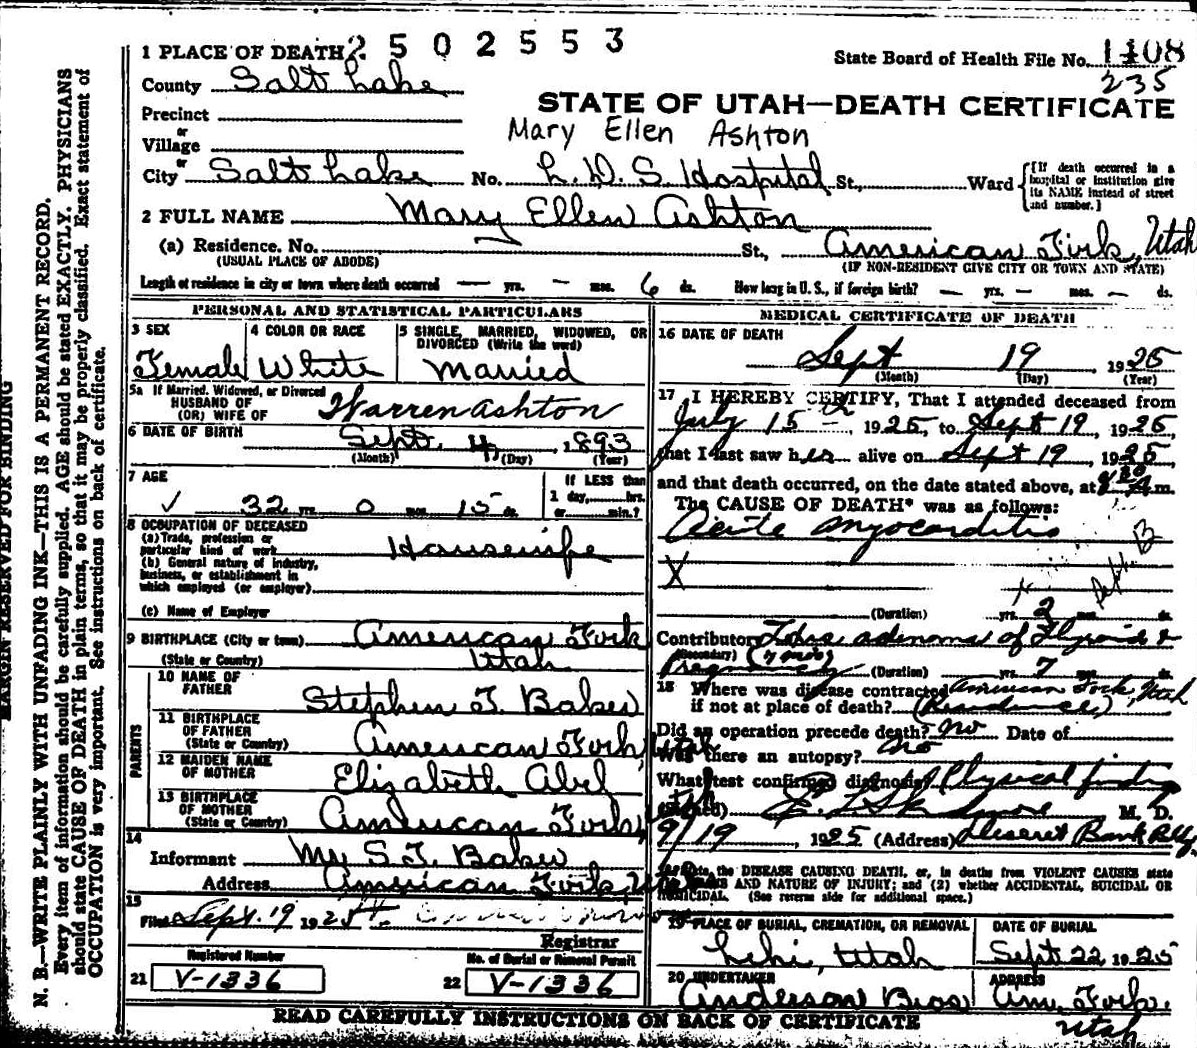 1 PLACE OF DEATH 2502553
State Board of Health File No. 1408
235
County Salt Lake
STATE OF UTAH—DEATH CERTIFICATE
Precinct
or
Mary Ellen Ashton
Village
or
City Salt Lake No. L. D. S. Hospital St., Ward {[If death occurred in a hospital or institution give its NAME instead of street and number.]
2 FULL NAME Mary Ellen Ashton
(a) Residence. No. St., American Fork, Utah
(USUAL PLACE OF ABODE) (IF NON-RESIDENT GIVE CITY OR TOWN AND STATE)
Length of residence in city or town where death occurred — yrs. — mos. 6 ds. How long in U. S., if foreign birth? — yrs. — mos. — ds.
PERSONAL AND STATISTICAL PARTICULARS
3 SEX 4 COLOR OR RACE 5 SINGLE, MARRIED, WIDOWED, OR
DIVORCED (Write the word)
Female White Married
5a If Married, Widowed, or Divorced
HUSBAND OF
(OR) WIFE OF Warren Ashton
6 DATE OF BIRTH Sept. 4, 1893
(Month) (Day) (Year)
7 AGE If LESS than
1 day, hrs.
32 yrs. 0 mos. 15 ds. or min.?
8 OCCUPATION OF DECEASED
(a) Trade, profession or
particular kind of work Housewife
(b) General nature of industry,
business, or establishment in
which employed (or employer)
(c) Name of Employer
9 BIRTHPLACE (City or town) American Fork
(State or Country) Utah
PARENTS
10 NAME OF
FATHER Stephen T. Baker
11 BIRTHPLACE
OF FATHER
(State or Country) American Fork, Utah
12 MAIDEN NAME
OF MOTHER Elizabeth Abel
13 BIRTHPLACE
OF MOTHER
(State or Country) American Fork, Utah
14
Informant Mr S. T. Baker
Address American Fork, Utah
15
Filed Sept. 19 1925
Registrar
Registered Number No. of Burial or Removal Permit
21 V-1336 22 V-1336
MEDICAL CERTIFICATE OF DEATH
16 DATE OF DEATH
Sept 19 1925
(Month) (Day) (Year)
17 I HEREBY CERTIFY, That I attended deceased from
July 15 -, 1925, to Sept 19, 1925,
that I last saw her alive on Sept 19, 1925
and that death occurred, on the date stated above, at m.
The CAUSE OF DEATH* was as follows:
Acute myocarditis
X
(Duration) yrs. 2 mos. ds.
Contributory Toxic adenoma of Thyroid &
(Secondary)
Pregnancy (7 mos) (Duration) yrs. 7 mos. ds.
18 Where was disease contracted American Fork, Utah
if not at place of death? (Residence)
Did an operation precede death? no Date of
Was there an autopsy? no
What test confirmed diagnosis? Physical finding
(Signed) E. L. Skidmore M. D.
9/19, 1925 (Address) Deseret Bank Bldg.
*State the DISEASE CAUSING DEATH, or, in deaths from VIOLENT CAUSES state
MEANS AND NATURE OF INJURY; and (2) whether ACCIDENTAL, SUICIDAL OR
HOMICIDAL. (See reverse side for additional space.)
19 PLACE OF BURIAL, CREMATION, OR REMOVAL DATE OF BURIAL
Lehi, Utah Sept 22 1925
20 UNDERTAKER ADDRESS
Anderson Bros Am. Fork,
Utah
READ CAREFULLY INSTRUCTIONS ON BACK OF CERTIFICATE
MARGIN RESERVED FOR BINDING
N. B.—WRITE PLAINLY WITH UNFADING INK—THIS IS A PERMANENT RECORD.
Every item of information should be carefully supplied. AGE should be stated EXACTLY. PHYSICIANS
should state CAUSE OF DEATH in plain terms, so that it may be properly classified. Exact statement of
OCCUPATION is very important. See instructions on back of certificate.